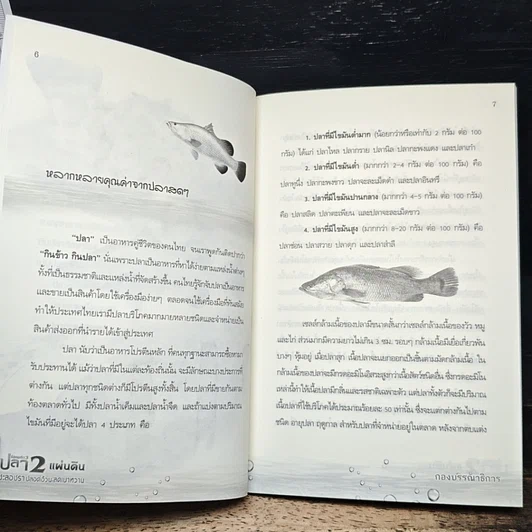 6
หลากหลายคุณค่าจากปลาสดๆ
"ปลา" เป็นอาหารคู่ชีวิตของคนไทย จนเราพูดกันติดปากว่า
"กินข้าว กินปลา" นั่นเพราะปลาเป็นอาหารที่หาได้ง่ายตามแหล่งน้ำต่างๆ
ทั้งที่เป็นธรรมชาติและแหล่งน้ำที่จัดสร้างขึ้น คนไทยรู้จักจับปลามาเป็นอาหาร
และขายเป็นสินค้าโดยใช้เครื่องมือง่ายๆ ตลอดจนใช้เครื่องมือที่ทันสมัย
ทำให้ประเทศไทยเรามีปลาบริโภคมากมายหลายชนิดและจำหน่ายเป็น
สินค้าส่งออกที่นำรายได้เข้าสู่ประเทศ
ปลา นับว่าเป็นอาหารโปรตีนหลัก ที่คนทุกฐานะสามารถซื้อหามา
รับประทานได้ แม้ว่าปลาที่มีในแต่ละท้องถิ่นนั้น จะมีลักษณะบางประการที่
ต่างกัน แต่ปลาทุกชนิดต่างก็มีโปรตีนสูงทั้งสิ้น โดยปลาที่ขายกันตาม
ท้องตลาดทั่วไป มีทั้งปลาน้ำเค็มและปลาน้ำจืด และถ้าแบ่งตามปริมาณ
ไขมันที่มีอยู่จะได้ปลา 4 ประเภท คือ
ปลา 2 แผ่นดิน
7
1. ปลาที่มีไขมันต่ำมาก (น้อยกว่าหรือเท่ากับ 2 กรัม ต่อ 100
กรัม) ได้แก่ ปลาไหล ปลากราย ปลานิล ปลากะพงแดง และปลาเก๋า
2. ปลาที่มีไขมันต่ำ (มากกว่า 2-4 กรัม ต่อ 100 กรัม) คือ
ปลาทูนึ่ง ปลากะพงขาว ปลาจะละเม็ดดำ และปลาอินทรี
3. ปลาที่มีไขมันปานกลาง (มากกว่า 4-5 กรัม ต่อ 100 กรัม)
คือ ปลาสลิด ปลาตะเพียน และปลาจะละเม็ดขาว
4. ปลาที่มีไขมันสูง (มากกว่า 8-20 กรัม ต่อ 100 กรัม) คือ
ปลาช่อน ปลาสวาย ปลาดุก และปลาสำลี
เซลล์กล้ามเนื้อของปลามีขนาดสั้นกว่าเซลล์กล้ามเนื้อของวัว หมู
และไก่ ส่วนมากมีความยาวไม่เกิน 3 ซม. รอบๆ กล้ามเนื้อมีเยื่อเกี่ยวพัน
บางๆ หุ้มอยู่ เมื่อปลาสุก เนื้อปลาจะแยกออกเป็นชิ้นตามมัดกล้ามเนื้อ ใน
กล้ามเนื้อของปลามีกรดอะมิโนอิสระสูงกว่าเนื้อสัตว์ชนิดอื่น ซึ่งกรดอะมิโน
เหล่านี้ทำให้เนื้อปลามีกลิ่นและรสชาติเฉพาะตัว แต่ปลาทั้งตัวก็จะมีปริมาณ
เนื้อปลาที่ใช้บริโภคได้ประมาณร้อยละ 50 เท่านั้น ซึ่งจะแตกต่างกันไปตาม
ชนิด อายุปลา ฤดูกาล สำหรับปลาที่จำหน่ายอยู่ในตลาด หลังจากตบแต่ง
กองบรรณาธิการ